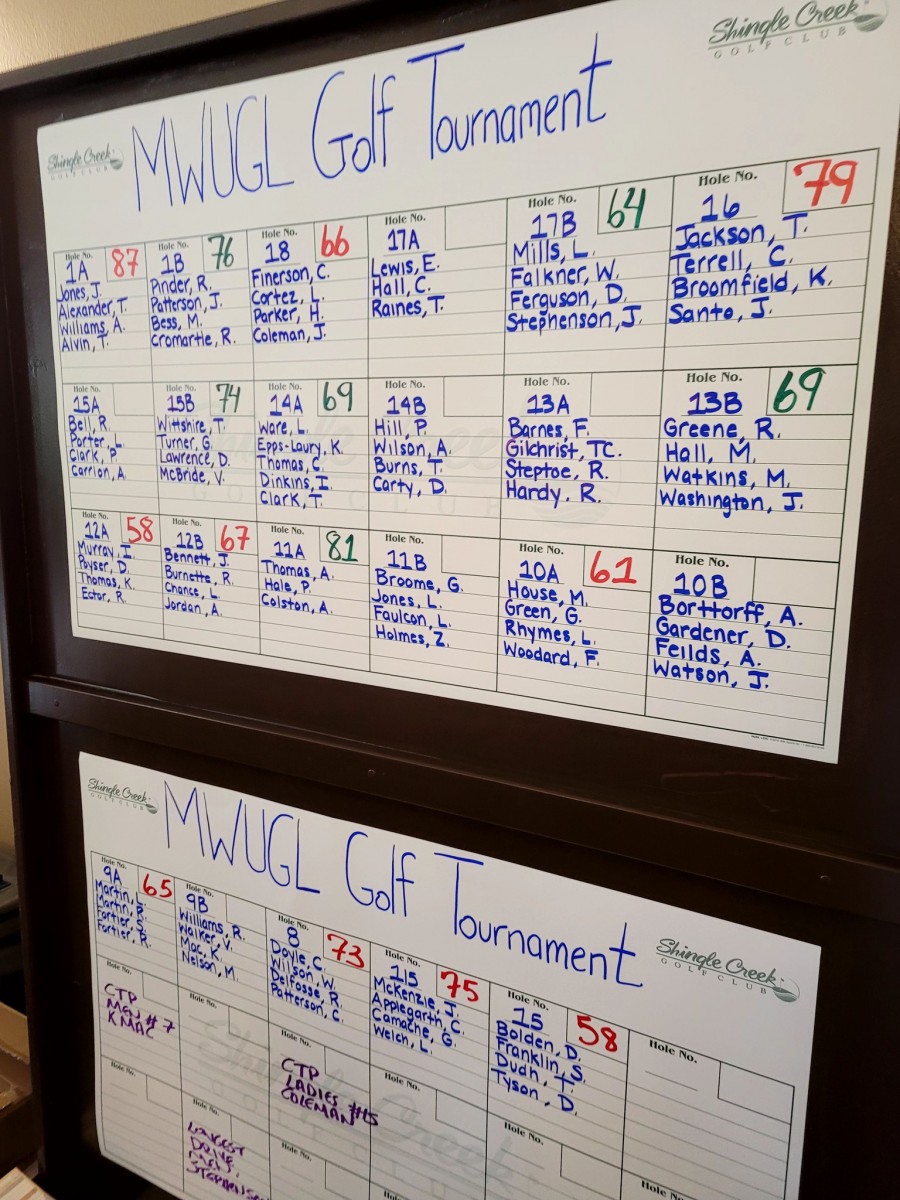 Shingle Creek
GOLF CLUB
Shingle Creek
GOLF CLUB
MWUGL Golf Tournament
Hole No.
1A 87
Jones, J.
Alexander, T.
Williams, A.
Alvin, T.
Hole No.
1B 76
Pinder, R.
Patterson, J.
Bess, M.
Cromartie, R.
Hole No.
18 66
Finerson, C.
Cortez, L.
Parker, H.
Coleman, J.
Hole No.
17A
Lewis, E.
Hall, C.
Raines, T.
Hole No.
17B 64
Mills, L.
Falkner, W.
Ferguson, D.
Stephenson, J.
Hole No.
16 79
Jackson, T.
Terrell, C.
Broomfield, K.
Santo, J.
Hole No.
15A
Bell, R.
Porter, L.
Clark, P
Carrion, A.
Hole No.
15B 74
Wiltshire, T.
Turner, G.
Lawrence, D.
McBride, V.
Hole No.
14A 69
Ware, L.
Epps-Laury, K.
Thomas, C.
Dinkins, I.
Clark, T.
Hole No.
14B
Hill, P.
Wilson, A.
Burns, T.
Carty, D.
Hole No.
13A
Barnes, F.
Gilchrist, TC.
Steptoe, R.
Hardy, R.
Hole No.
13B 69
Greene, R.
Hall, M.
Watkins, M.
Washington, J.
Hole No.
12A 58
Murray, I.
Poyser, D.
Thomas, K.
Ector, R.
Hole No.
12B 67
Bennett, J.
Burnette, R.
Chance, L.
Jordan, A.
Hole No.
11A 81
Thomas, A.
Hale, P.
Colston, A.
Hole No.
11B
Broome, G.
Jones, L.
Faulcon, L.
Holmes, Z.
Hole No.
10A 61
House, M.
Green, G.
Rhymes, L.
Woodard, F.
Hole No.
10B
Borttorff, A.
Gardener, D.
Feilds, A.
Watson, J.
Shingle Creek
GOLF CLUB
MWUGL Golf Tournament
Shingle Creek
GOLF CLUB
Hole No.
9A 65
Martin, L.
Martin, R.
Fortier, S.
Fortier, R.
Hole No.
9B
Williams, R.
Walker, V.
Mac, K.
Nelson, M.
Hole No.
8 73
Doyle, C.
Wilson, W.
Delfosse, R.
Patterson, C.
Hole No.
115 75
McKenzie, J.
Applegarth, C.
Camache, G.
Welch, L.
Hole No.
15 58
Bolden, D.
Franklin, S.
Dudh, T.
Tyson, D.
Hole No.
Hole No.
CTP
MEN #7
KMAC
Hole No.
Hole No.
CTP
LADIES #15
COLEMAN
Hole No.
Hole No.
Hole No.
Hole No.
Hole No.
LONGEST
DRIVE
Hole No.
Hole No.